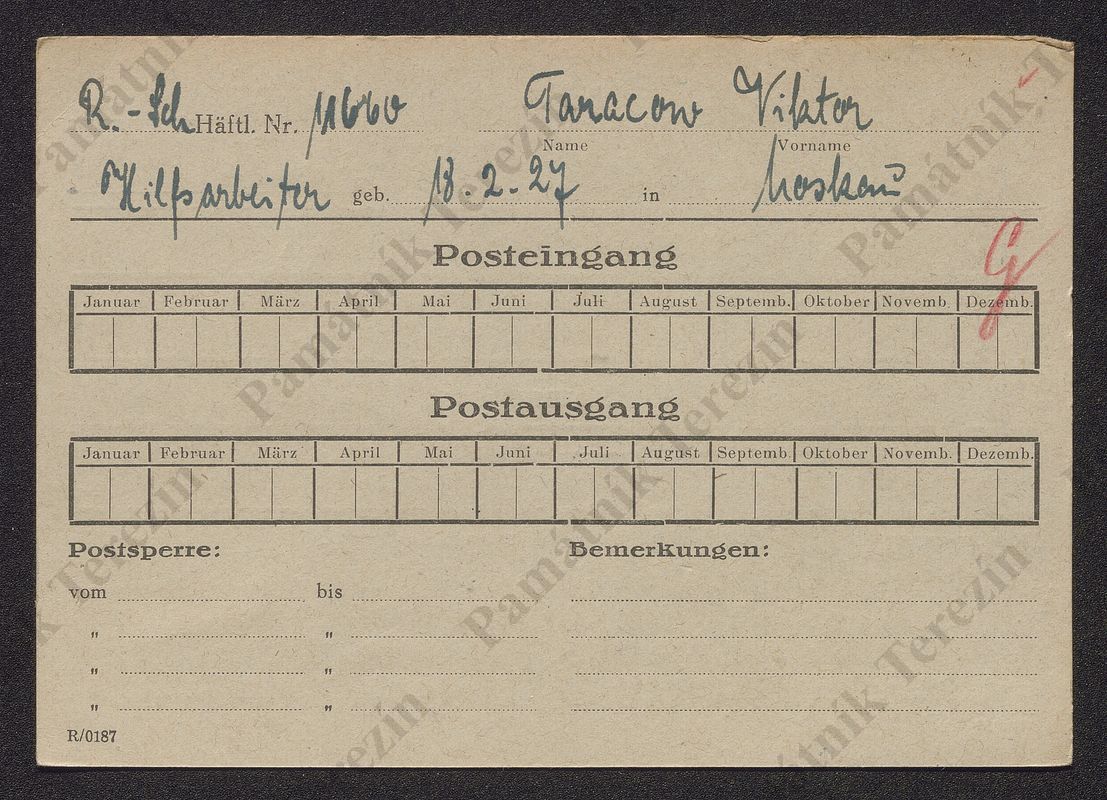 R.-Sch Häftl. Nr. 11660 Taracow Viktor
Name Vorname
Hilfsarbeiter geb. 18.2.27 in Moskau
G
Posteingang
Januar Februar März April Mai Juni Juli August Septemb. Oktober Novemb. Dezemb.
Postausgang
Januar Februar März April Mai Juni Juli August Septemb. Oktober Novemb. Dezemb.
Postsperre: Bemerkungen:
vom bis
" "
" "
" "
R/0187
Památník Terezín